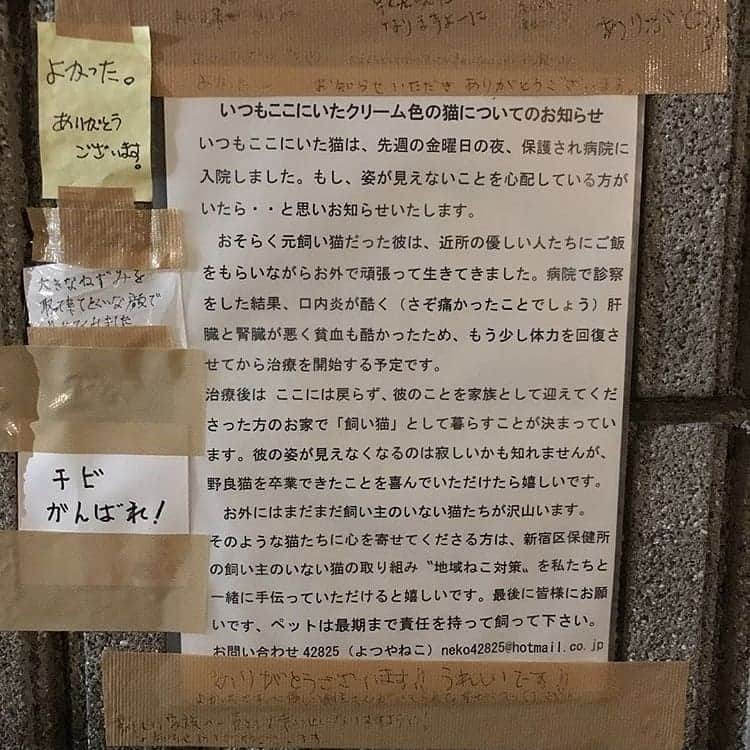 なりますように
ありがとう
お知らせいただき ありがとうございます
よかった。
ありがとう
ございます。
いつもここにいたクリーム色の猫についてのお知らせ
いつもここにいた猫は、先週の金曜日の夜、保護され病院に
入院しました。もし、姿が見えないことを心配している方が
いたら・・と思いお知らせいたします。
おそらく元飼い猫だった彼は、近所の優しい人たちにご飯
をもらいながらお外で頑張って生きてきました。病院で診察
をした結果、口内炎が酷く(さぞ痛かったことでしょう)肝
臓と腎臓が悪く貧血も酷かったため、もう少し体力を回復さ
せてから治療を開始する予定です。
治療後は ここには戻らず、彼のことを家族として迎えてくだ
さった方のお家で「飼い猫」として暮らすことが決まってい
ます。彼の姿が見えなくなるのは寂しいかも知れませんが、
野良猫を卒業できたことを喜んでいただけたら嬉しいです。
お外にはまだまだ飼い主のいない猫たちが沢山います。
そのような猫たちに心を寄せてくださる方は、新宿区保健所
の飼い主のいない猫の取り組み〝地域ねこ対策〟を私たちと
一緒に手伝っていただけると嬉しいです。最後に皆様にお願
いです、ペットは最期まで責任を持って飼って下さい。
お問い合わせ 42825(よつやねこ)neko42825@hotmail.co.jp
大きなねずみを
チビ
がんばれ!
ありがとうございます!! うれしいです!!